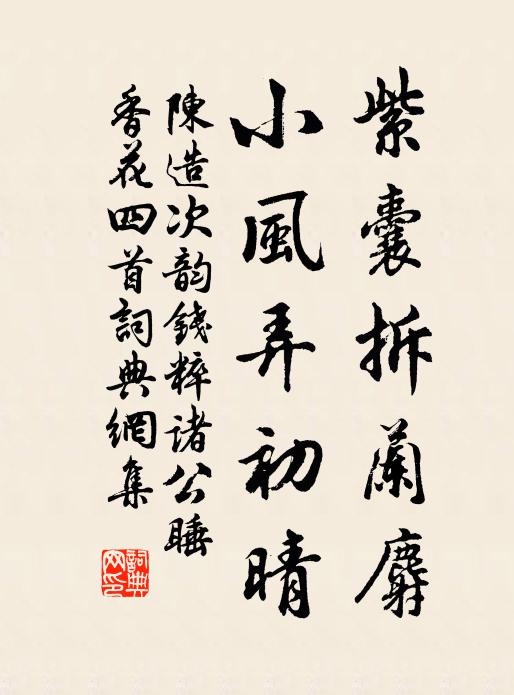 紫囊拆蘭麝
小風弄初晴
陳造次韵錢粹諸公睡
香花四首詞典網集
詞典网印